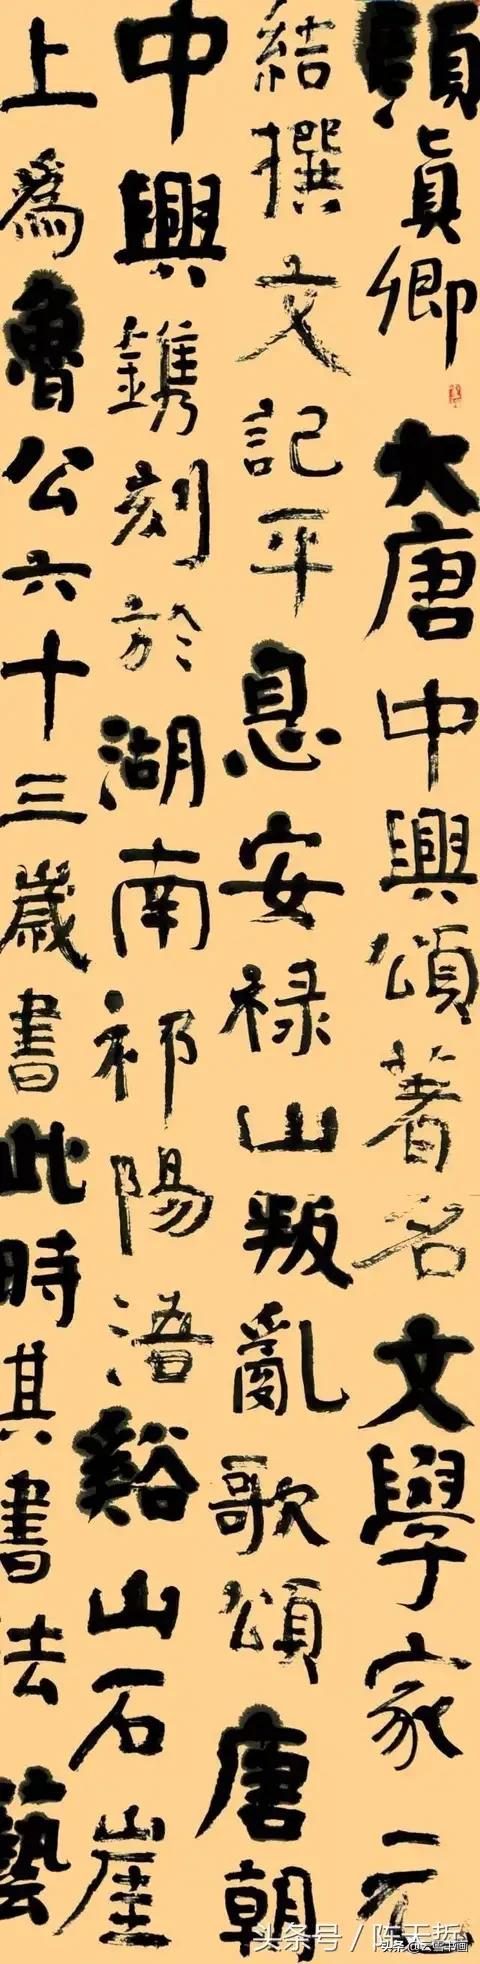 顔真卿大唐中興頌著名文學家元
結撰文記平息安禄山叛亂歌頌唐朝
中興鐫刻於湖南祁陽浯谿山石崖
上為魯公六十三歲書此時其書法藝
头条号 / 陈天哲
头条